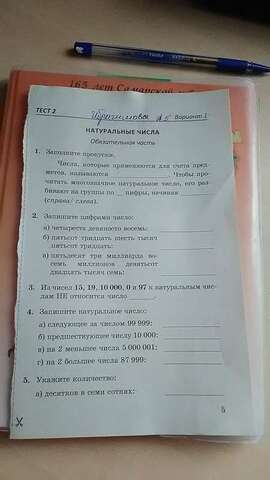 165 лет Самарской
ТЕСТ 2
Вариант 1
НАТУРАЛЬНЫЕ ЧИСЛА
Обязательная часть
1. Запишите пропуски.
Числа, которые применяются для счета пред-
метов, называются ______. Чтобы про-
читать многозначное натуральное число, его раз-
бивают на группы по __ цифры, начиная ______
(справа/ слева).
2. Запишите цифрами число:
а) четыреста девяносто восемь:
б) пятьсот тридцать шесть тысяч
пятьсот тридцать:
в) пятьдесят три миллиарда во-
семь миллионов девятьсот
двадцать тысяч семь:
3. Из чисел 15, 19, 10 000, 0 и 97 к натуральным чис-
лам НЕ относится число ______.
4. Запишите натуральное число:
а) следующее за числом 99 999:
б) предшествующее числу 10 000:
в) на 2 меньшее числа 5 000 001:
г) на 2 большее числа 87 999:
5. Укажите количество:
а) десятков в семи сотнях:
5